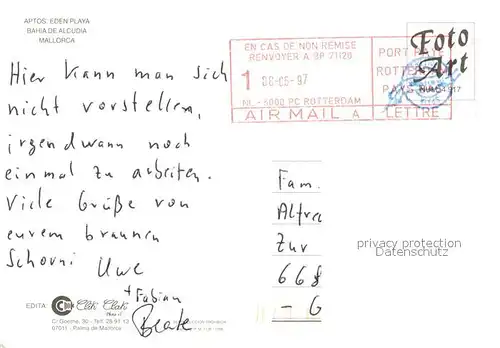 APTOS: EDEN PLAYA
BAHIA DE ALCUDIA
MALLORCA
Hier kann man sich
nicht vorstellen,
irgendwann noch
einmal zu arbeiten.
Viele Grüße von
eurem braunen
Schorni Uwe
+ Fabian
Beate
EDITA:
C/. Goethe, 30 - Tel. 28 91 13
07011 - Palma de Mallorca
EN CAS DE NON REMISE
RENVOYER A. BP 71120
1
NL - 8000 PC ROTTERDAM
AIR MAIL A
PORT PAYÉ
ROTTERDAM
PAYS
LETTRE
Foto
Art
Fam.
Alfre
Zur
668
- G
privacy protection
Datenschutz